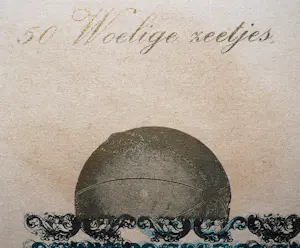 50 Woelige zeetjes.